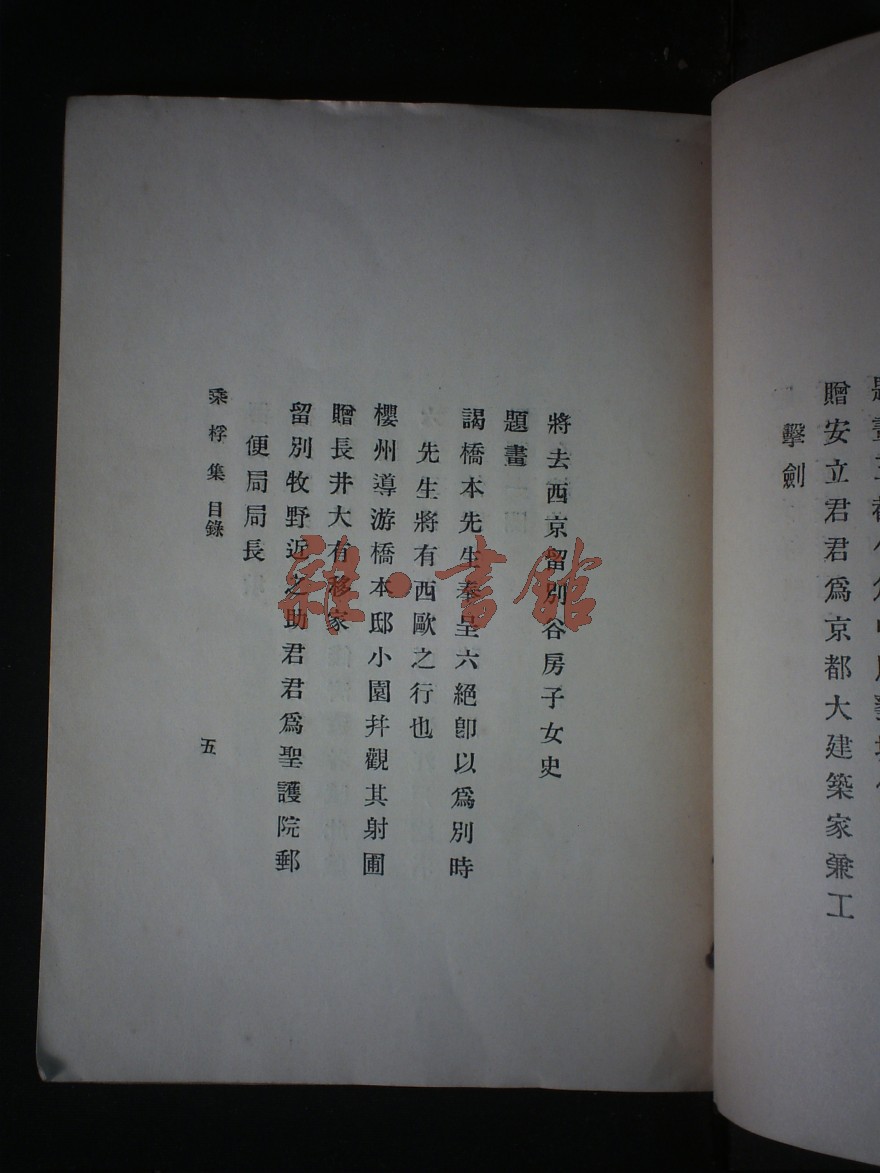 贈安立君君爲京都大建築家兼工
擊劍
將去西京留別谷房子女史
題畫
謁橋本先生奉呈六絕卽以爲別時
先生將有西歐之行也
櫻州導游橋本邸小園幷觀其射圃
贈長井大有移家
留別牧野近之助君君爲聖護院郵
便局局長
乘桴集 目錄
五
雜·書館